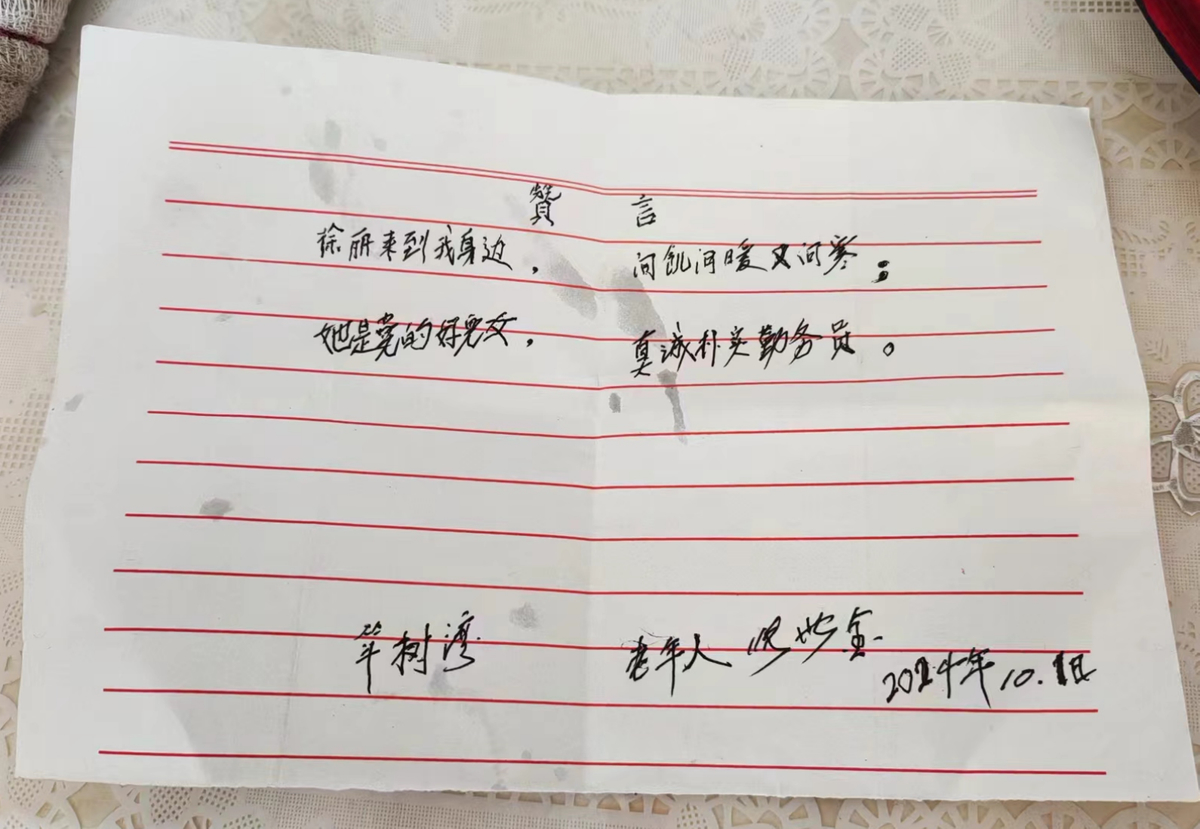 贊 言
徐丽来到我身边， 问饥问暖又问寒；
她是党的好儿女， 真诚朴实勤务员。
树湾 老年人 金
2024年10.1日